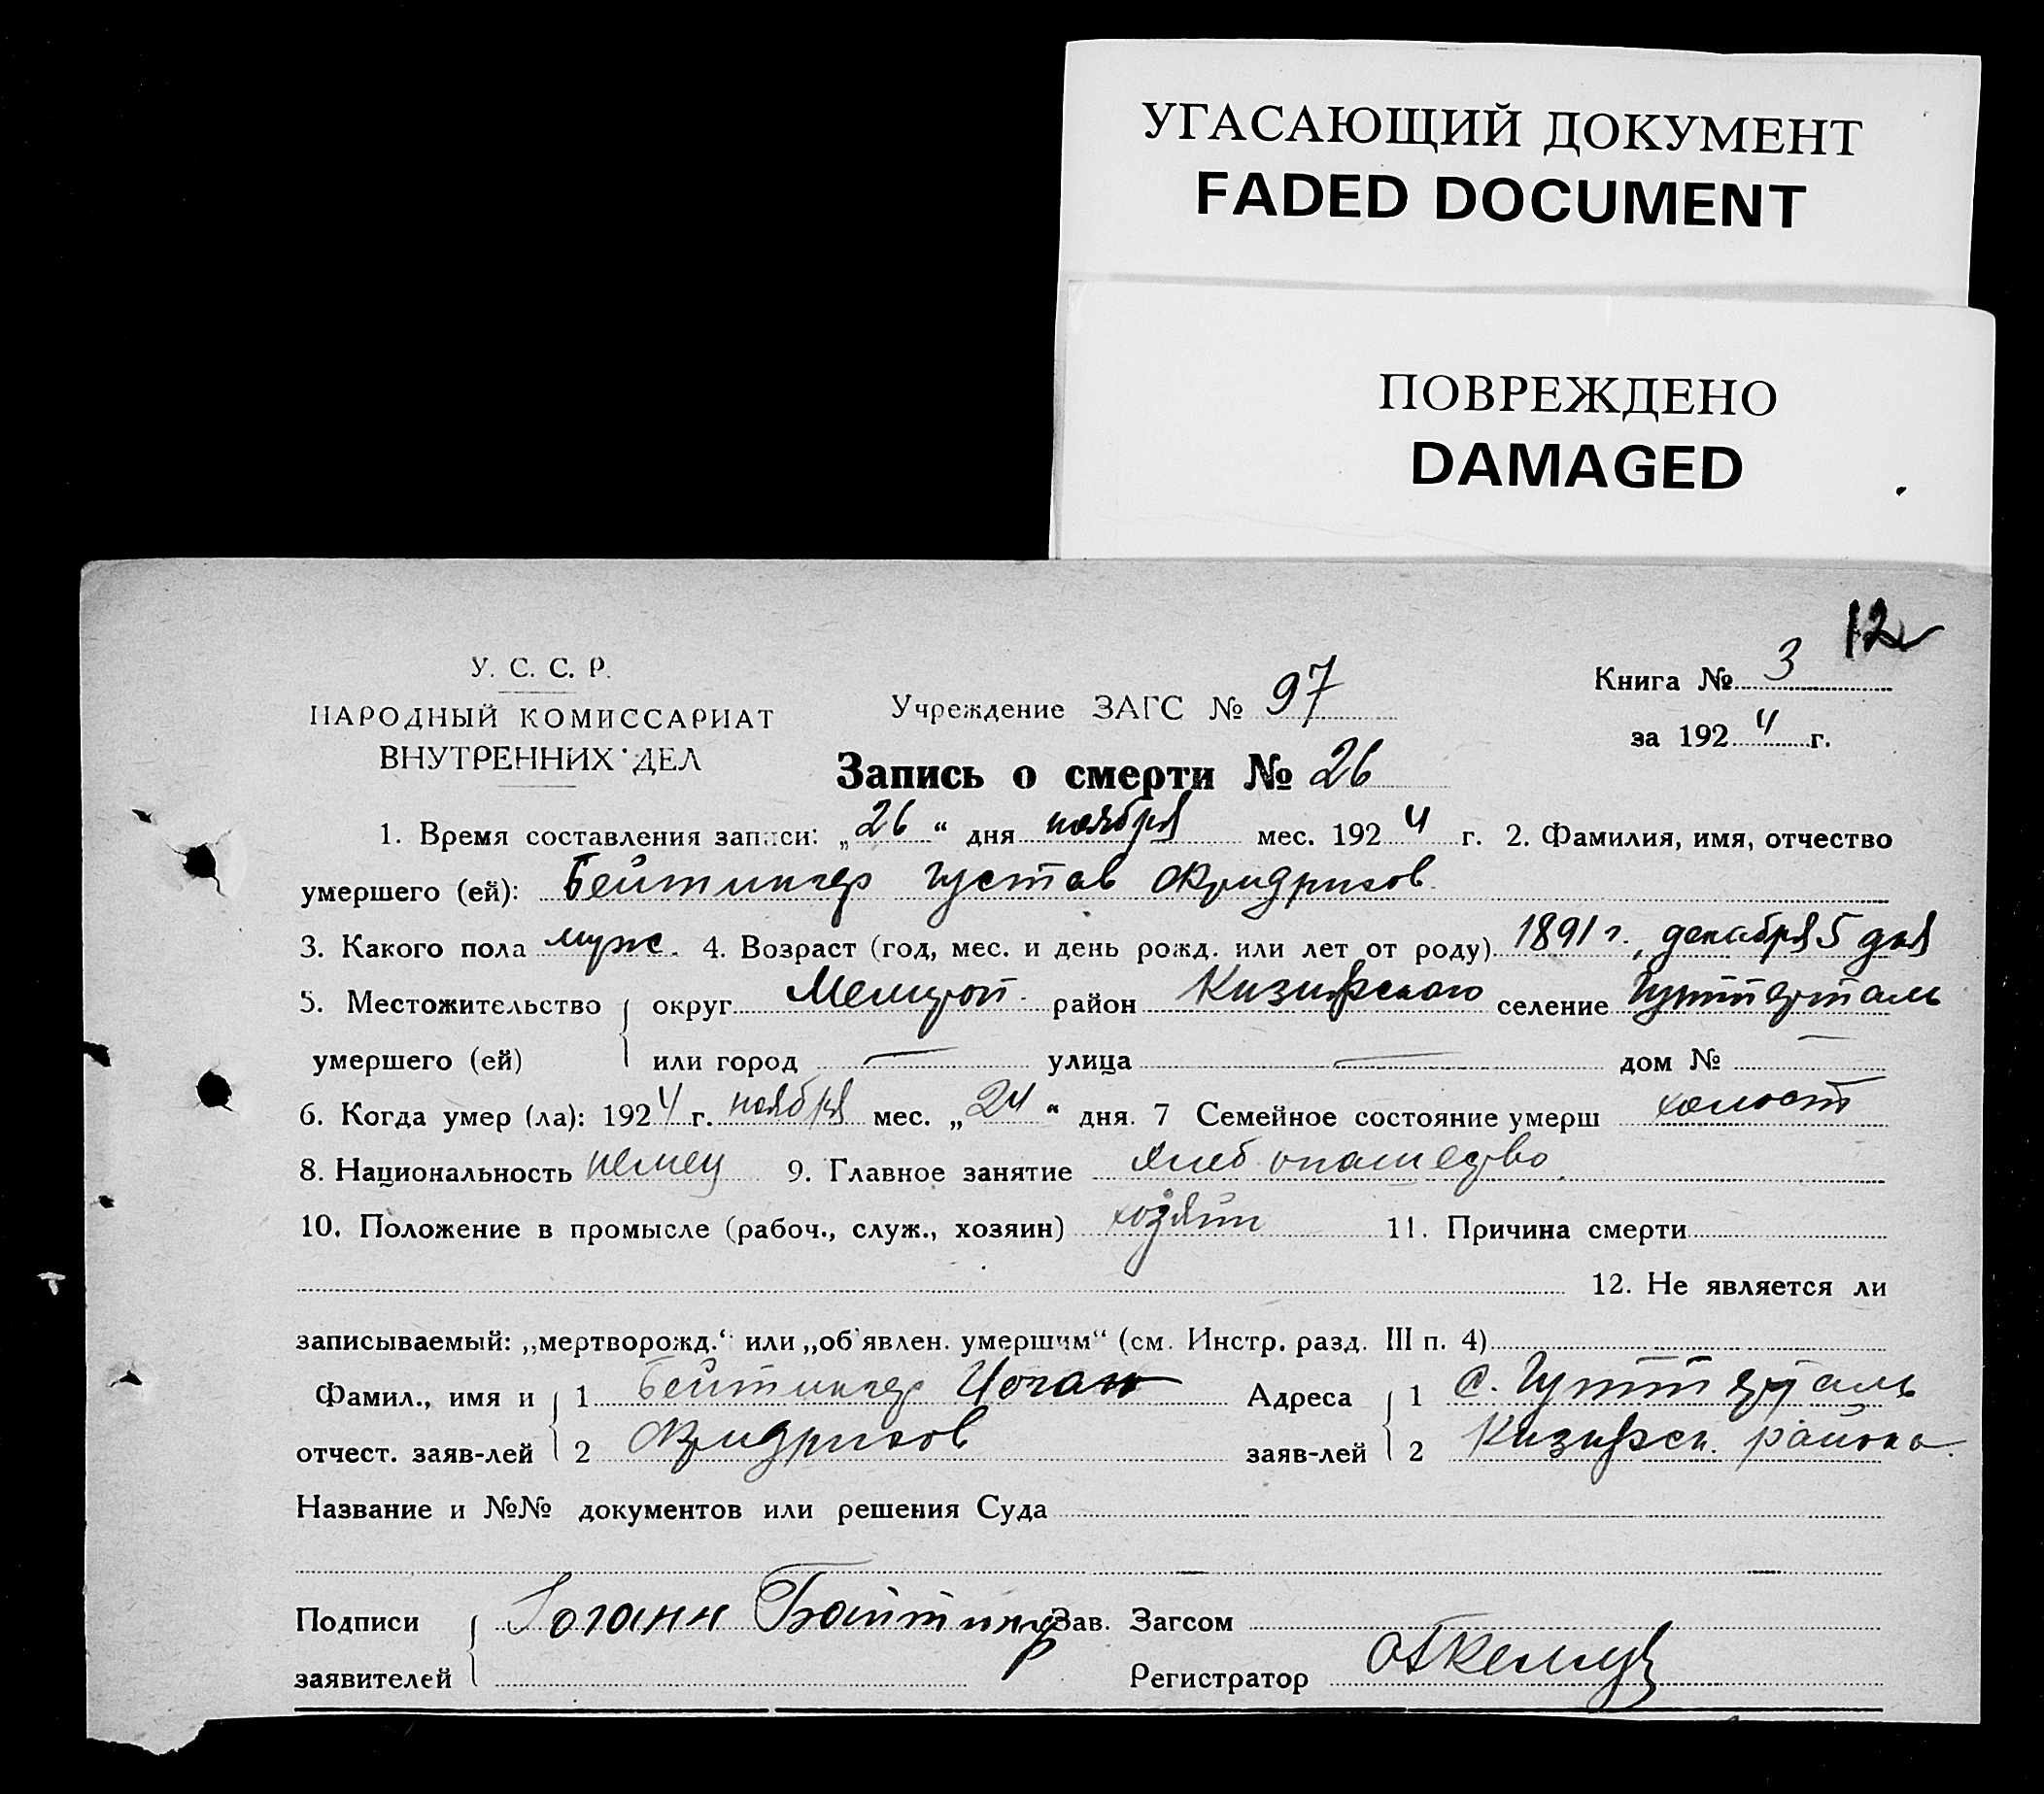 УГАСАЮЩИЙ ДОКУМЕНТ
FADED DOCUMENT
ПОВРЕЖДЕНО
DAMAGED
12
У. С. С. Р.
НАРОДНЫЙ КОМИССАРИАТ
ВНУТРЕННИХ ДЕЛ
Учреждение ЗАГС № 97
Книга № 3
за 1924 г.
Запись о смерти № 26
1. Время составления записи: „26“ дня ноября мес. 1924 г. 2. Фамилия, имя, отчество
умершего (ей): Бейтингер Густав Фридрихов
3. Какого пола муж. 4. Возраст (год, мес. и день рожд. или лет от роду) 1891 г. декабря 5 дня
5. Местожительство округ Мелитоп. район Кизиярского селение Гуттерталь
умершего (ей) или город — улица — дом № —
6. Когда умер (ла): 1924 г. ноября мес. „24“ дня. 7 Семейное состояние умерш холост
8. Национальность немец 9. Главное занятие хлебопашество
10. Положение в промысле (рабоч., служ., хозяин) хозяин 11. Причина смерти
12. Не является ли
записываемый: „мертворожд.“ или „об'явлен. умершим“ (см. Инстр. разд. III п. 4)
Фамил., имя и 1 Бейтингер Иоган Адреса 1 с. Гуттерталь
отчест. заяв-лей 2 Фридрихов заяв-лей 2 Кизиярск. района
Название и №№ документов или решения Суда
Подписи Іоганн Байтингер Зав. Загсом
заявителей Регистратор